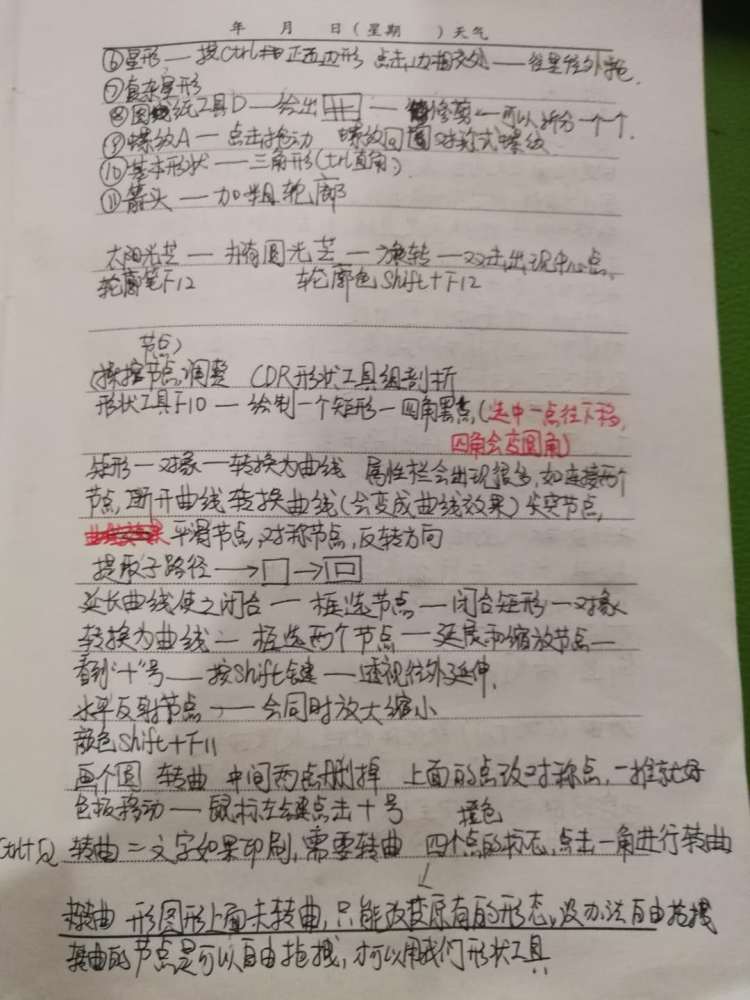 年 月 日(星期 )天气
⑥星形—按Ctrl 正五边形 点击边相交处——往里往外拖.
⑦复杂星形
⑧图纸工具D—绘出 — 修剪—可以拆分一个个.
⑨螺纹A—点击拖动 螺纹回圈 对称式螺纹
⑩基本形状——三角形(Ctrl直角)
⑪箭头—加粗轮廓
太阳光芒—拥有圆光芒—旋转—双击出现中心点,
轮廓笔F12 轮廓色Shift+F12
节点)
(操控节点调整 CDR形状工具组剖折
形状工具F10—绘制一个矩形—四角黑点,(选中一点往下移,
四角会变圆角)
矩形—对象—转换为曲线 属性栏会出现很多,如连接两个
节点,断开曲线 转换曲线(会变成曲线效果)尖突节点,
平滑节点,对称节点,反转方向
提取子路径→□→回
延长曲线使之闭合—框选节点—闭合矩形—对象
转换为曲线—框选两个节点—延展和缩放节点—
看到"十"号——按Shift键—透视往外延伸.
水平反射节点——会同时放大缩小
颜色Shift+F11
画个圆 转曲 中间两点删掉 上面的点改对称点,一推就好
色板移动—鼠标左键点击十号 橙色
转曲=文字如果印刷,需要转曲 四个点的状态,点击一角进行转曲
形图形上面未转曲,只能改变原有的形态,没办法自由拖拽
转曲的节点是可以自由拖拽,才可以用我们形状工具